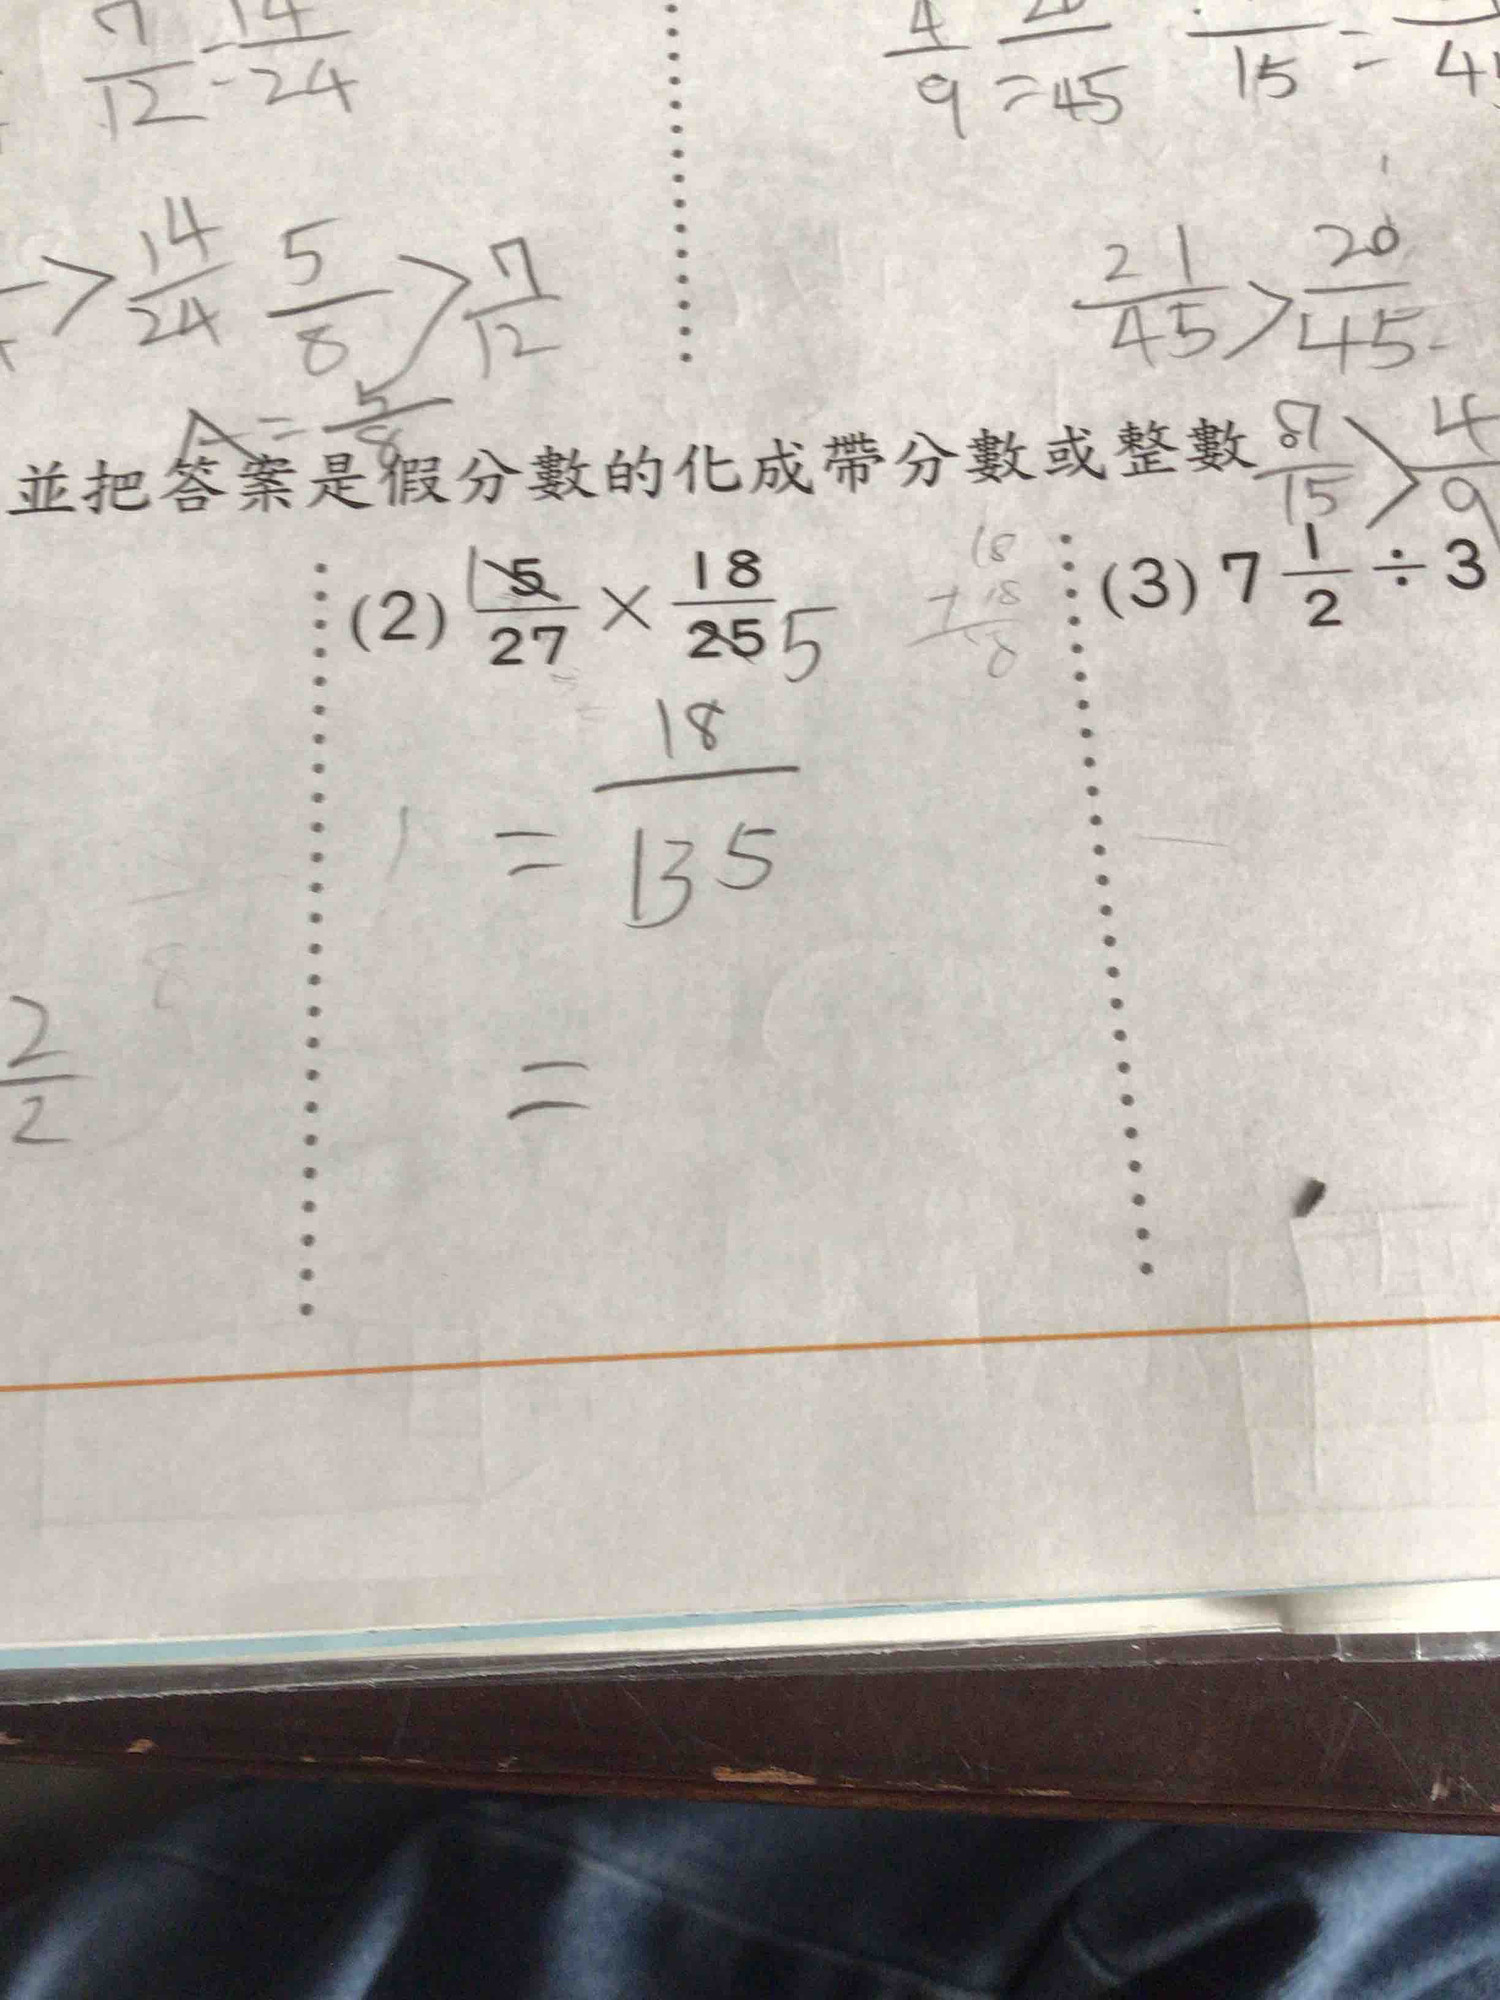 7/12 = 14/24
4/9 = 45
15 = 4
> 14/24 5/8 > 7/12
21/45 > 20/45
A = 5/8
並把答案是假分數的化成帶分數或整數
8/15 > 4/9
(2) 5/27 × 18/25
1 5
18
+ 18
8
(3) 7 1/2 ÷ 3
= 18/135
2/2
=